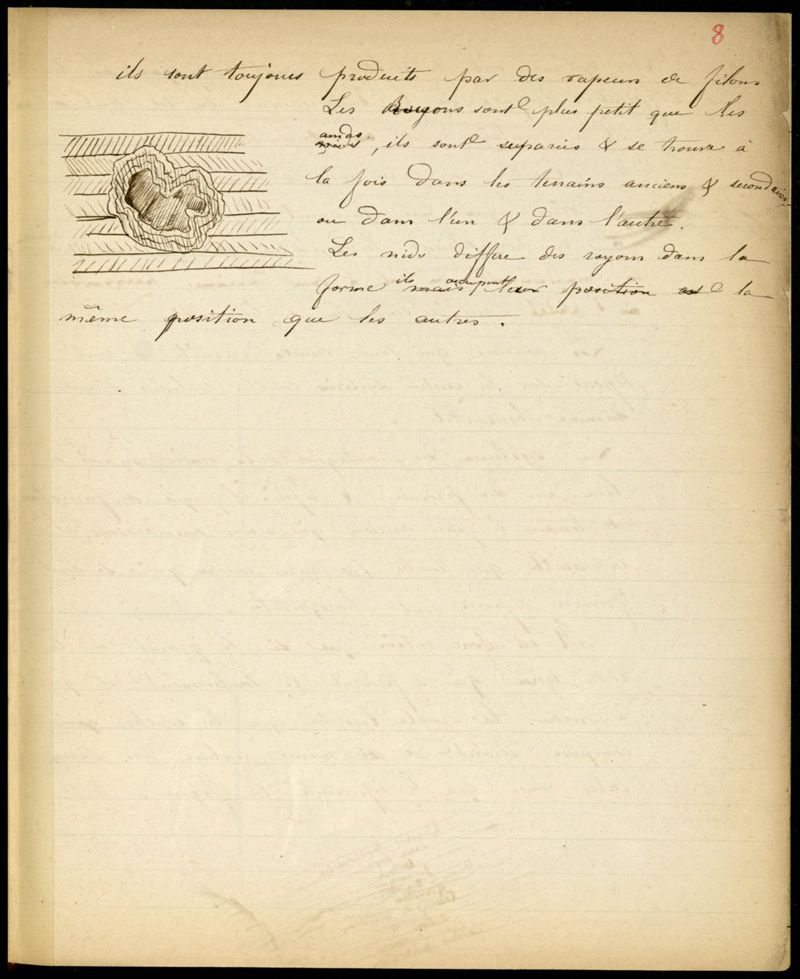 8
ils sont toujours produits par des vapeurs de filons
Les Rayons sont plus petit que les
amas
nids, ils sont séparés & se trouve à
la fois dans les terrains anciens & secondaires
ou dans l'un & dans l'autre.
Les nids differe des rayons dans la
ils occupent
forme mais leur position est la
même position que les autres.